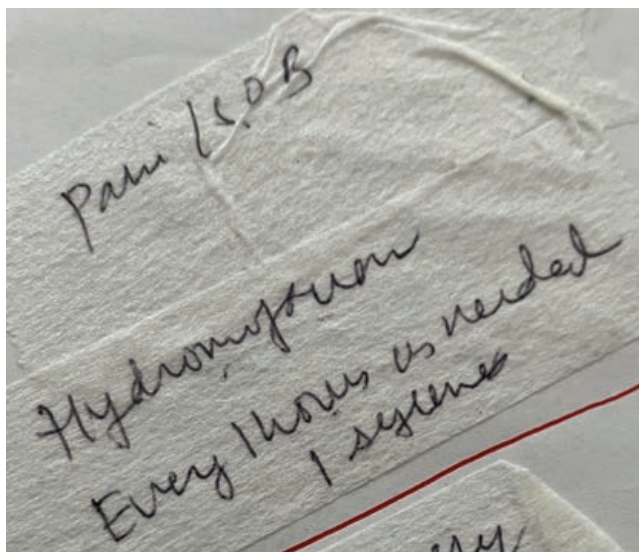 Pain / SOB
Hydromorphone
Every 1 hours as needed
1 syringe